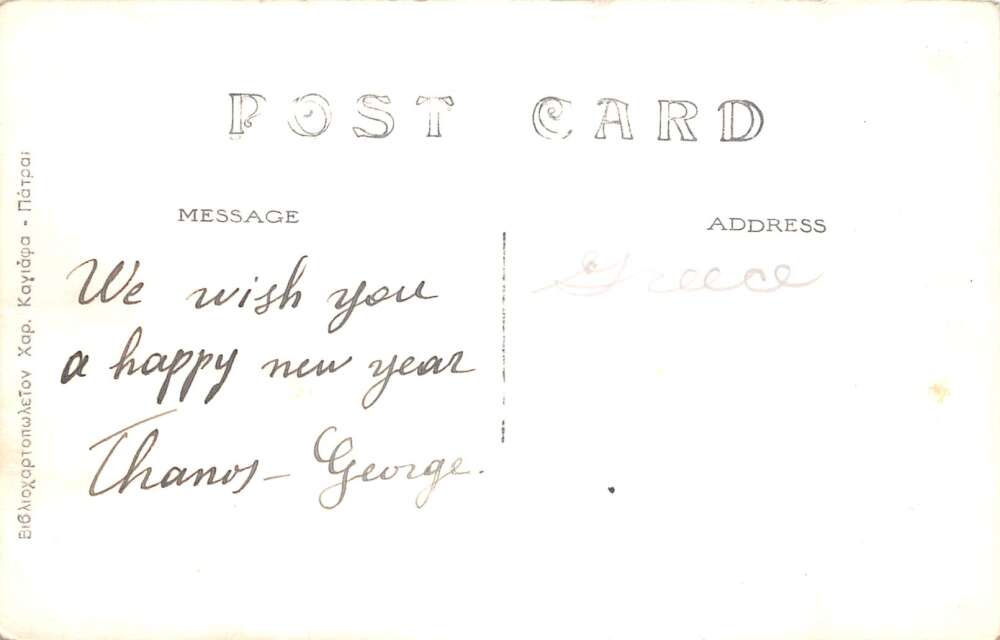 POST CARD
MESSAGE
ADDRESS
We wish you
a happy new year
Thanos - George.
Greece
Βιβλιοχαρτοπωλεῖον Χαρ. Καγιάφα - Πάτραι